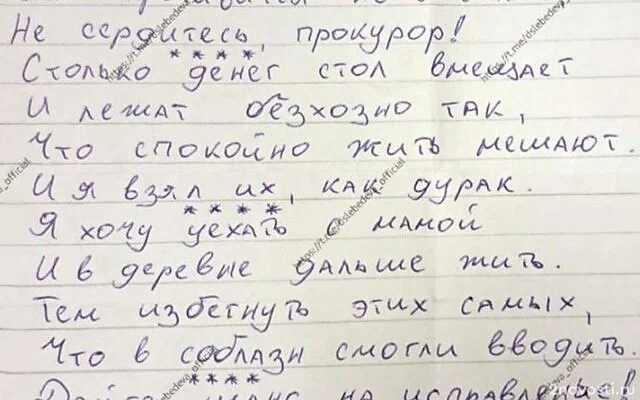 Не сердитесь, прокурор!
* * * *
Столько денег стол вмещает
И лежат безхозно так,
Что спокойно жить мешают.
И я взял их, как дурак.
* * * *
Я хочу уехать с мамой
И в деревне дальше жить.
Тем избегнуть этих самых,
Что в соблазн смогли вводить.
* * * *
на исправленье!
https://t.me/dslebedeva_official
2novosti.ru